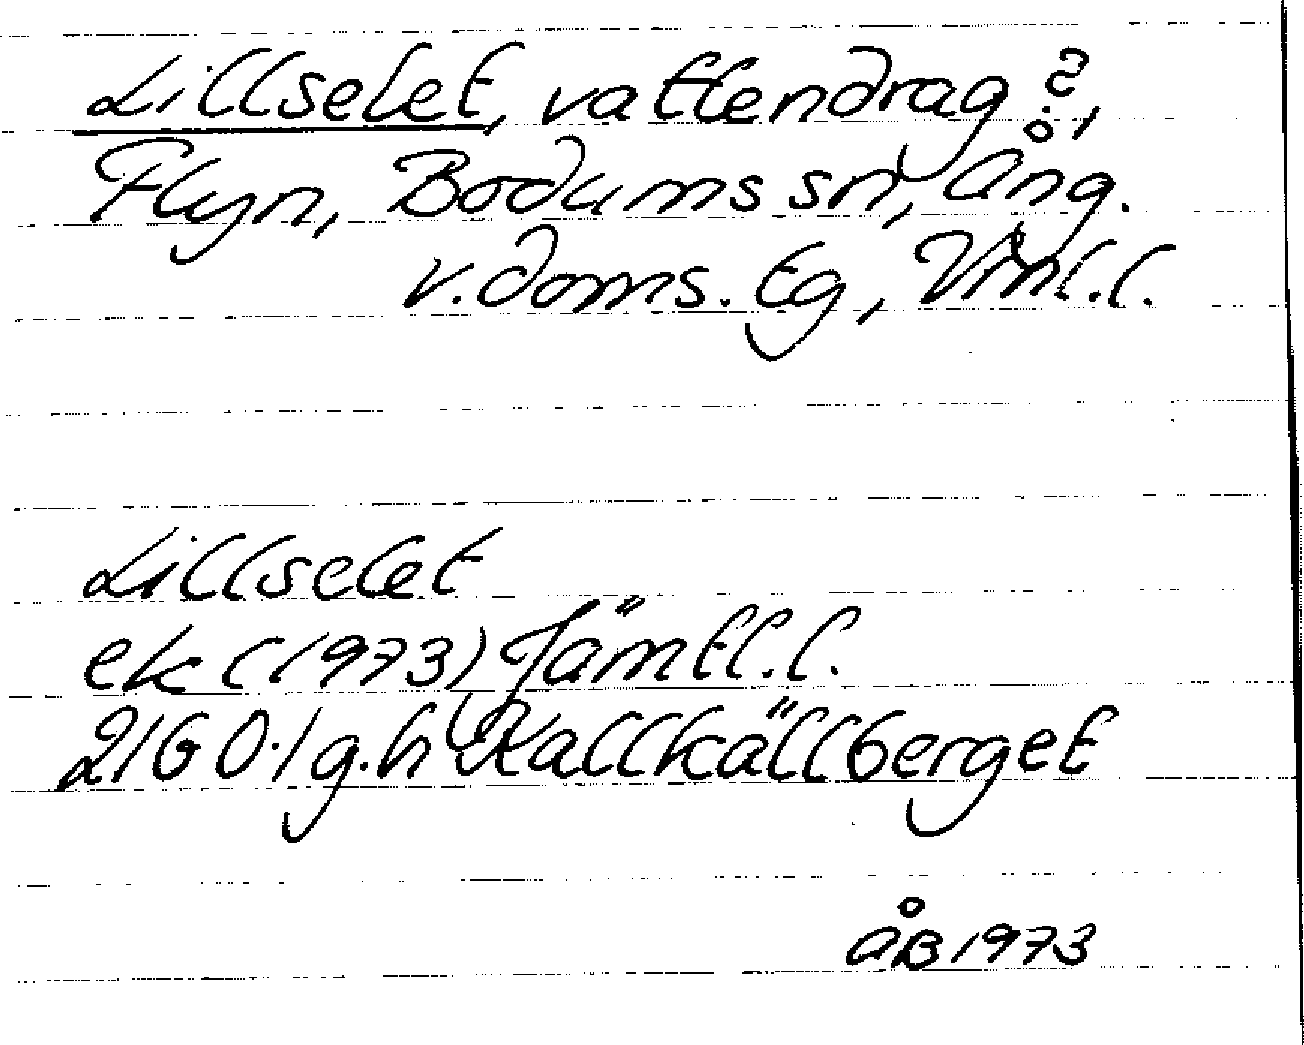 Lillselet, vattendrag?,
Flyn, Bodums sn, Ång.
v. doms. tg, Vnl. l.
Lillselet
ek (1973) Jämtl. l.
21G 0-1 g.h Kallkällberget
ÅB 1973